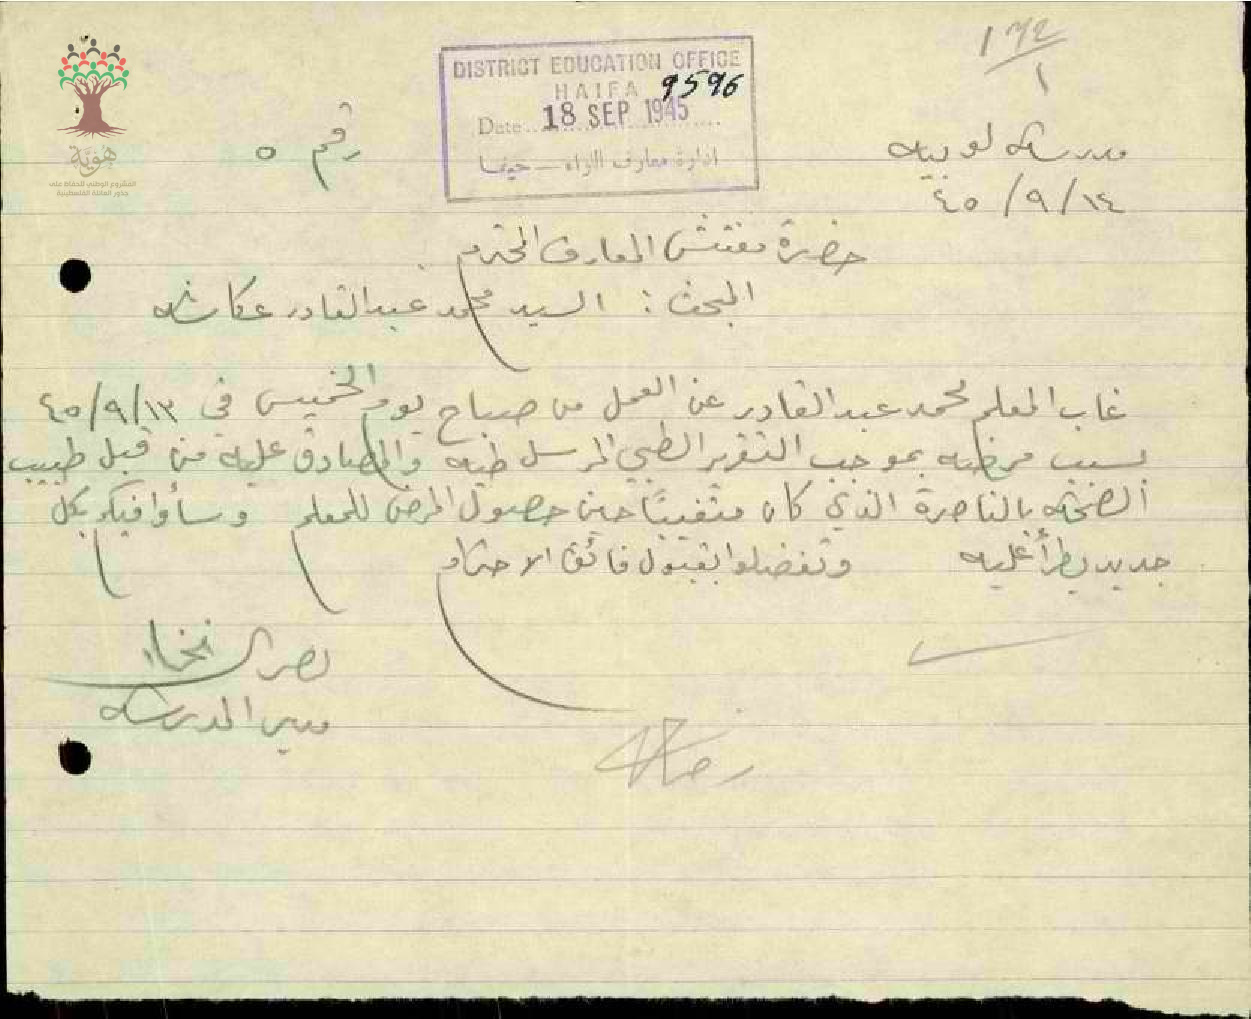 ١٧٢/١
DISTRICT EDUCATION OFFICE
HAIFA 9596
Date 18 SEP 1945
ادارة معارف اللواء — حيفا
هوية
المشروع الوطني للحفاظ على
جذور العائلة الفلسطينية
مدرسة لوبيه
رقم ٥
١٤/٩/٤٥
حضرة مفتش المعارف المحترم
المبحث : السيد محمد عبد القادر عكاشه
غاب المعلم محمد عبد القادر عن العمل من صباح يوم الخميس في ١٣/٩/٤٥
بسبب مرضه بموجب التقرير الطبي المرسل طيه والمصادق عليه من قبل طبيب
الصحة بالناصرة الذي كان متغيبًا حين حصول المرض للمعلم وسأوافيكم بكل
جديد يطرأ عليه وتفضلوا بقبول فائق الاحترام
مدير المدرسة